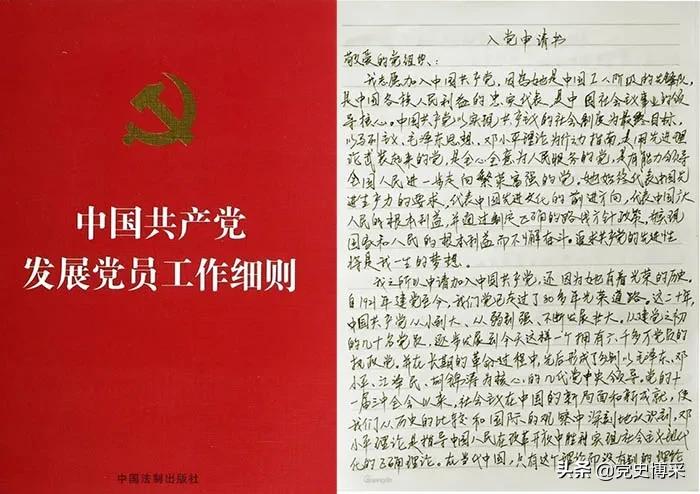 中国共产党
发展党员工作细则
中国法制出版社
入党申请书
敬爱的党组织:
我志愿加入中国共产党,因为她是中国工人阶级的先锋队,
是中国各族人民利益的忠实代表,是中国社会主义事业的领
导核心。中国共产党以实现共产主义的社会制度为最终目标,
以马列主义、毛泽东思想、邓小平理论为行动指南,是用先进理
论武装起来的党,是全心全意为人民服务的党,是有能力领导
全国人民进一步走向繁荣富强的党。她始终代表中国先
进生产力的要求,代表中国先进文化的前进方向,代表中国最广大
人民的根本利益,并通过制定正确的路线方针政策,为实现
国家和人民的根本利益而不懈奋斗。追求共产党的先进性
将是我一生的梦想。
我之所以申请加入中国共产党,还因为她有着光荣的历史。
自1921年建党至今,我们党已走过了80多年光荣道路。这几十年,
中国共产党从小到大、从弱到强、不断发展壮大。从建党之初
的几十名党员,逐步发展到今天这样一个拥有六千多万党员的
执政党,并在长期的革命过程中,先后形成了分别以毛泽东、邓
小平、江泽民、胡锦涛为核心的几代党中央领导。党的十
一届三中全会以来,社会主义在中国的新局面和新成就,使
我们从历史的比较和国际的观察中深刻地认识到,邓
小平理论是指导中国人民在改革开放中胜利实现社会主义现代
化的正确理论。在当代中国,只有这个理论而没有别的理论
头条@党史博采